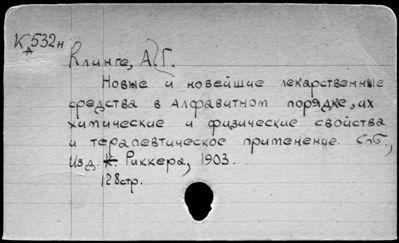 К 532н
Клинге, А. Г.
Новые и новейшие лекарственные
средства в алфавитном порядке, их
химические и физические свойства
и терапевтическое применение. Спб.,
Изд. К. Риккера, 1903.
128стр.